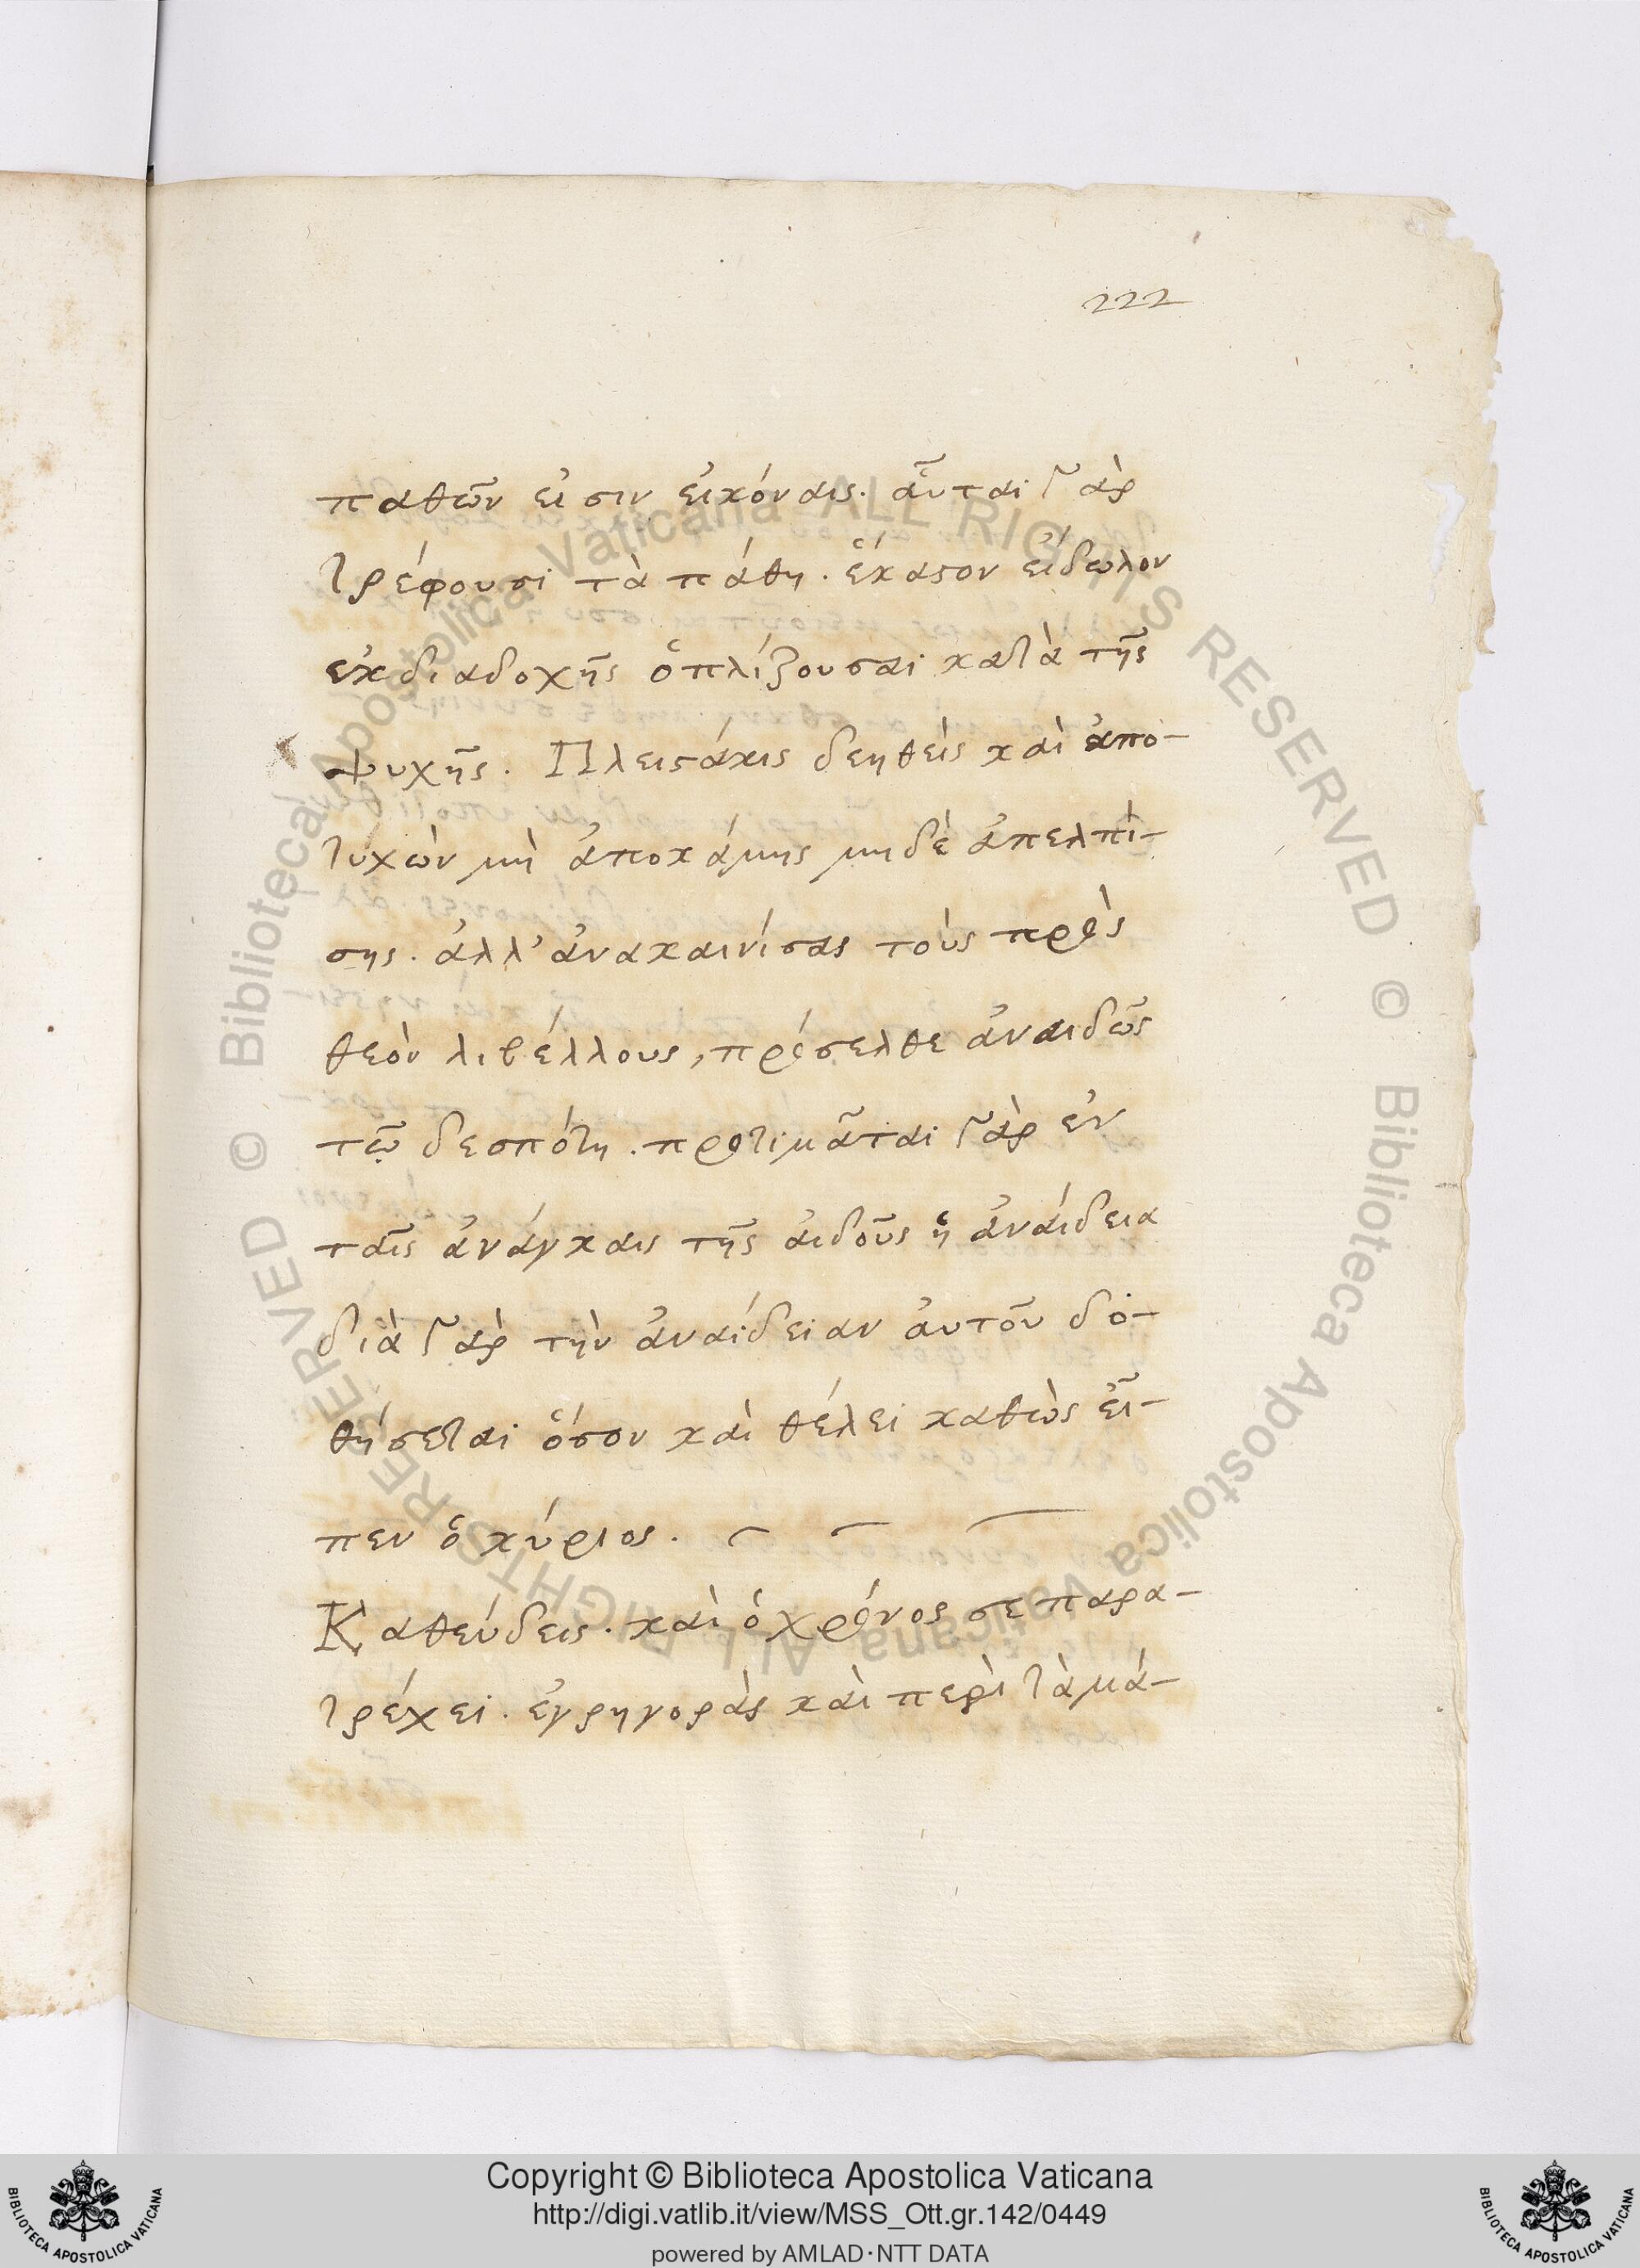 222
παθῶν εἰσιν εἰκόναις. αὗται γὰρ
τρέφουσι τὰ πάθη. ἕκαστον εἴδωλον
ἐκδιαδοχῆς ὁπλίζουσαι κατὰ τῆς
ψυχῆς. Πλειστάκις δεηθεὶς καὶ ἀπο-
τυχὼν μὴ ἀποκάμης μηδὲ ἀπελπί-
σης. ἀλλ' ἀνακαινίσας τοὺς πρὸς
θεὸν λιβέλλους, πρόσελθε ἀναιδῶς
τῷ δεσπότη. προτιμᾶται γὰρ ἐν
ταῖς ἀνάγκαις τῆς αἰδοῦς ἡ ἀναίδεια
διὰ γὰρ τὴν ἀναίδειαν αὐτοῦ δο-
θήσεται ὅσον καὶ θέλει καθὼς εἶ-
πεν ὁ κύριος.
Καθεύδεις. καὶ ὁ χρόνος σε παρα-
τρέχει. ἐγρηγορὰς καὶ περὶ τὰ μά-
Biblioteca Apostolica Vaticana ALL RIGHTS RESERVED © Biblioteca Apostolica Vaticana ALL RIGHTS RESERVED ©
BIBLIOTECA APOSTOLICA VATICANA
Copyright © Biblioteca Apostolica Vaticana
http://digi.vatlib.it/view/MSS_Ott.gr.142/0449
powered by AMLAD·NTT DATA
BIBLIOTECA APOSTOLICA VATICANA